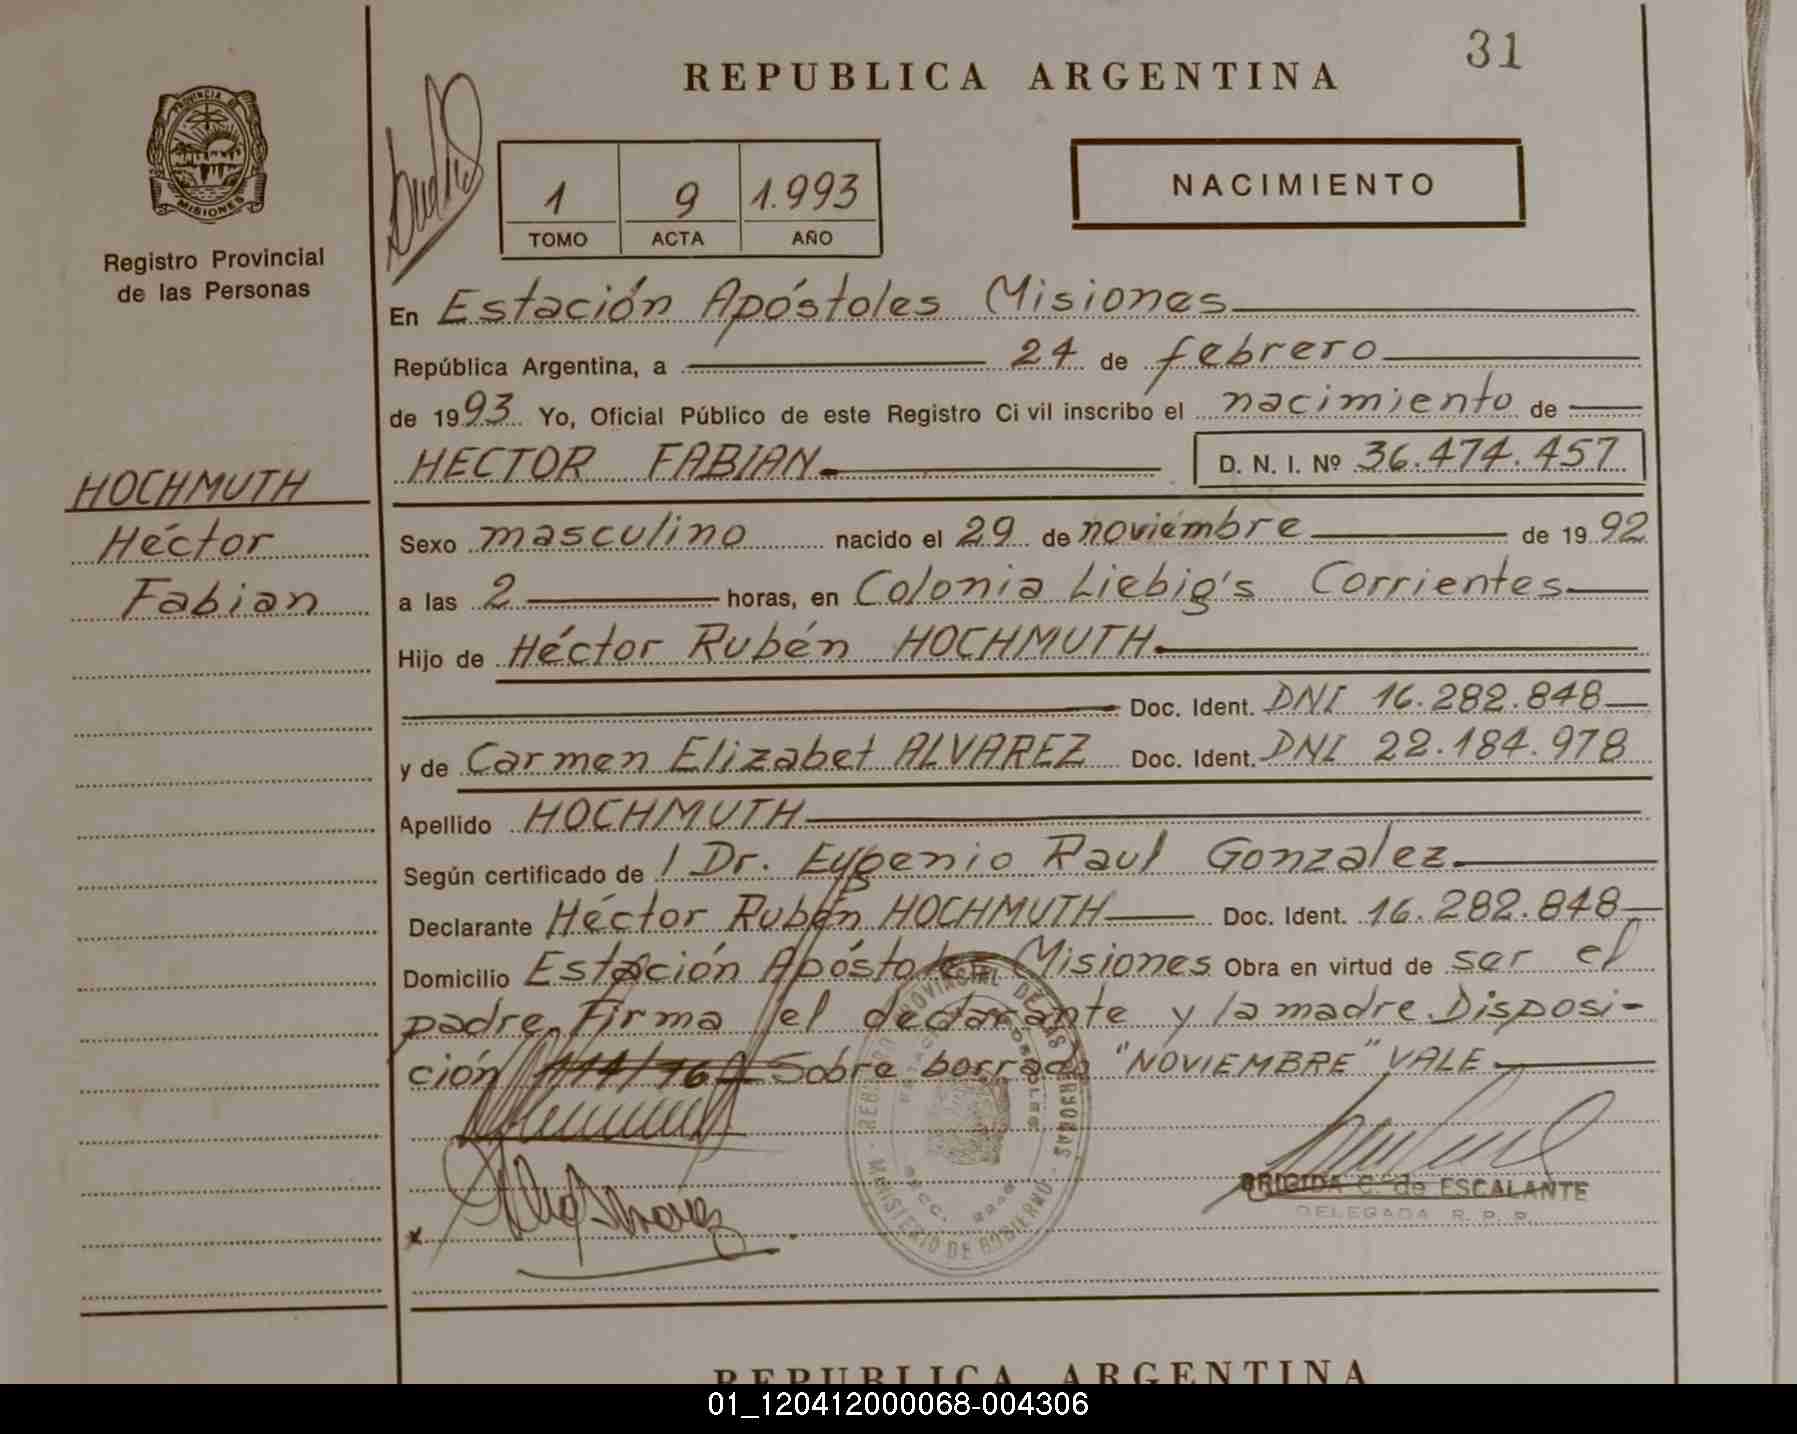 31
REPUBLICA ARGENTINA
PROVINCIA DE
MISIONES
Registro Provincial
de las Personas
1 9 1.993
TOMO ACTA AÑO
NACIMIENTO
En Estación Apóstoles Misiones
República Argentina, a 24 de febrero
de 1993 Yo, Oficial Público de este Registro Ci vil inscribo el nacimiento de
HECTOR FABIAN D. N. I. Nº 36.474.457
HOCHMUTH
Héctor
Fabian
Sexo masculino nacido el 29 de noviembre de 1992
a las 2 horas, en Colonia Liebig's Corrientes
Hijo de Héctor Rubén HOCHMUTH
Doc. Ident. DNI 16.282.848
y de Carmen Elizabet ALVAREZ Doc. Ident. DNI 22.184.978
Apellido HOCHMUTH
Según certificado de l Dr. Eugenio Raul Gonzalez
Declarante Héctor Rubén HOCHMUTH Doc. Ident. 16.282.848
Domicilio Estación Apóstoles Misiones Obra en virtud de ser el
padre. Firma el declarante y la madre. Disposi-
ción 114/76 Sobre borrado "NOVIEMBRE" VALE
REGISTRO PROVINCIAL DE LAS PERSONAS
MINISTERIO DE GOBIERNO
BRIGIDA C. de ESCALANTE
DELEGADA R. P. P.
REPUBLICA ARGENTINA
01_120412000068-004306